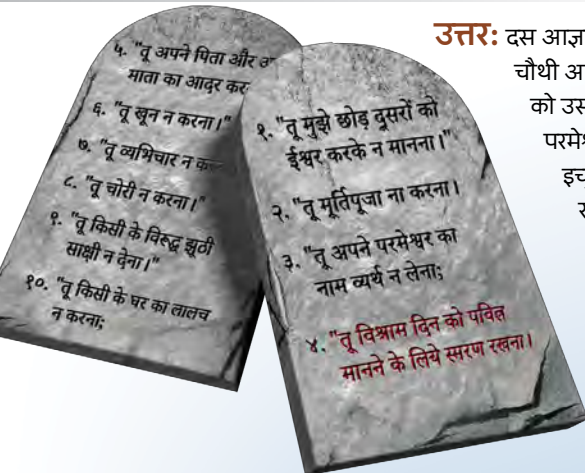 उत्तर: दस
चौथी
को
५. "तू अपने पिता और
माता का आदर
६. "तू खून न करना।"
७. "तू व्यभिचार न
८. "तू चोरी न करना।"
९. "तू किसी के विरूद्ध झूठी
साक्षी न देना।"
१०. "तू किसी के घर का लालच
न करना;
१. "तू मुझे छोड़ दूसरों को
ईश्वर करके न मानना।"
२. "तू मूर्तिपूजा ना करना।
३. "तू अपने परमेश्वर का
नाम व्यर्थ न लेना;
४. "तू विश्राम दिन को पवित्र
मानने के लिये स्मरण रखना।